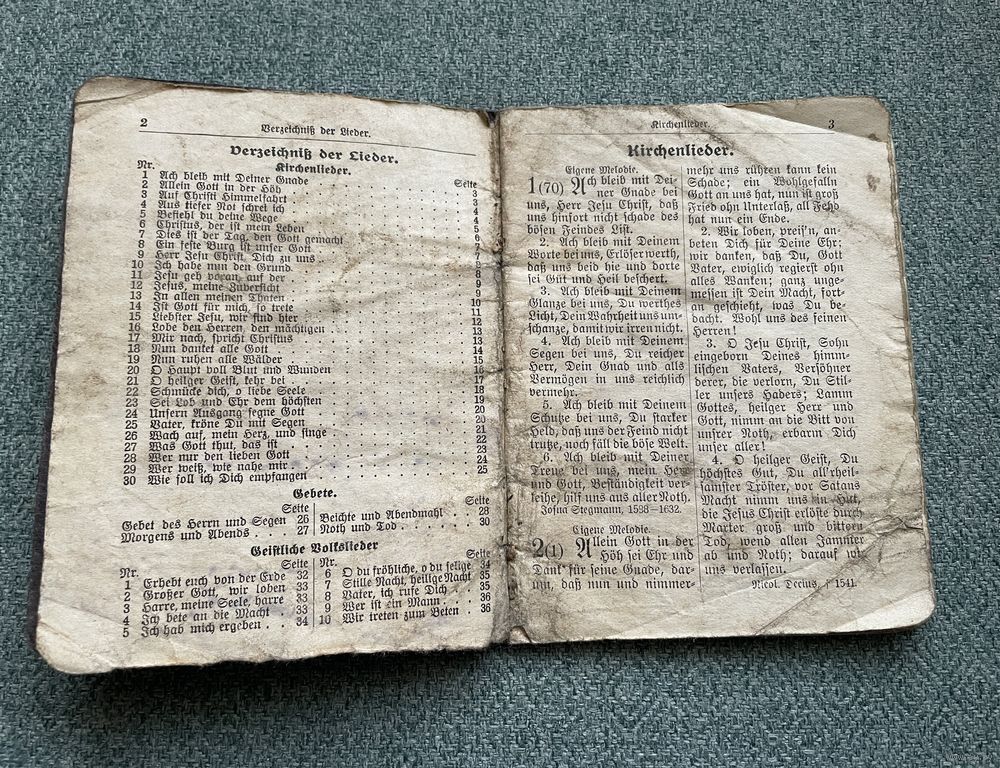 2
Verzeichniß der Lieder.
Verzeichniß der Lieder.
Kirchenlieder.
Nr. Seite
1 Ach bleib mit Deiner Gnade 3
2 Allein Gott in der Höh 3
3 Auf Christi Himmelfahrt 4
4 Aus tiefer Not schrei ich 4
5 Befiehl du deine Wege 5
6 Christus, der ist mein Leben 6
7 Dies ist der Tag, den Gott gemacht
8 Ein feste Burg ist unser Gott
9 Herr Jesu Christ, Dich zu uns
10 Ich habe nun den Grund
11 Jesu geh voran, auf der
12 Jesus, meine Zuversicht
13 In allen meinen Thaten
14 Ist Gott für mich, so trete
15 Liebster Jesu, wir sind hier
16 Lobe den Herren, den mächtigen
17 Mir nach, spricht Christus
18 Nun danket alle Gott
19 Nun ruhen alle Wälder
20 O Haupt voll Blut und Wunden
21 O heilger Geist, kehr bei
22 Schmücke dich, o liebe Seele
23 Sei Lob und Ehr dem höchsten
24 Unsern Ausgang segne Gott
25 Vater, kröne Du mit Segen
26 Wach auf, mein Herz, und singe
27 Was Gott thut, das ist
28 Wer nur den lieben Gott
29 Wer weiß, wie nahe mir
30 Wie soll ich Dich empfangen 25
Gebete.
Seite
Gebet des Herrn und Segen 26
Morgens und Abends 27
Seite
Beichte und Abendmahl 28
Noth und Tod 30
Geistliche Volkslieder
Nr. Seite
1 Erhebt euch von der Erde 32
2 Großer Gott, wir loben 33
3 Harre, meine Seele, harre 33
4 Ich bete an die Macht 33
5 Ich hab mich ergeben 34
Nr. Seite
6 O du fröhliche, o du selige 34
7 Stille Nacht, heilige Nacht 35
8 Vater, ich rufe Dich 35
9 Wer ist ein Mann 36
10 Wir treten zum Beten 36
Kirchenlieder.
3
Kirchenlieder.
Eigene Melodie.
1(70) Ach bleib mit Dei-
ner Gnade bei
uns, Herr Jesu Christ, daß
uns hinfort nicht schade des
bösen Feindes List.
2. Ach bleib mit Deinem
Worte bei uns, Erlöser werth,
daß uns beid hie und dorte
sei Güt und Heil beschert.
3. Ach bleib mit Deinem
Glanze bei uns, Du werthes
Licht, Dein Wahrheit uns um-
schanze, damit wir irren nicht.
4. Ach bleib mit Deinem
Segen bei uns, Du reicher
Herr, Dein Gnad und alls
Vermögen in uns reichlich
vermehr.
5. Ach bleib mit Deinem
Schutze bei uns, Du starker
Held, daß uns der Feind nicht
trutze, noch fäll die böse Welt.
6. Ach bleib mit Deiner
Treue bei uns, mein Herr
und Gott, Beständigkeit ver-
leihe, hilf uns aus aller Noth.
Josua Stegmann, 1588–1632.
Eigene Melodie.
2(1) Allein Gott in der
Höh sei Ehr und
Dank für seine Gnade, dar-
um, daß nun und nimmer-
mehr uns rühren kann kein
Schade; ein Wohlgefalln
Gott an uns hat, nun ist groß
Fried ohn Unterlaß, all Fehd
hat nur ein Ende.
2. Wir loben, preis'n, an-
beten Dich für Deine Ehr;
wir danken, daß Du, Gott
Vater, ewiglich regierst ohn
alles Wanken; ganz unge-
messen ist Dein Macht, fort-
an geschieht, was Du be-
dacht. Wohl uns des feinen
Herren!
3. O Jesu Christ, Sohn
eingeborn Deines himm-
lischen Vaters, Versöhner
derer, die verlorn, Du Stil-
ler unsers Haders; Lamm
Gottes, heilger Herr und
Gott, nimm an die Bitt von
unsrer Noth, erbarm Dich
unser aller!
4. O heilger Geist, Du
höchstes Gut, Du all'rheil-
samster Tröster, vor Satans
Macht nimm uns in Hut,
die Jesus Christ erlöste durch
Marter groß und bittern
Tod, wend allen Jammer
ab und Noth; darauf wir
uns verlassen.
Nicol. Decius, † 1541.